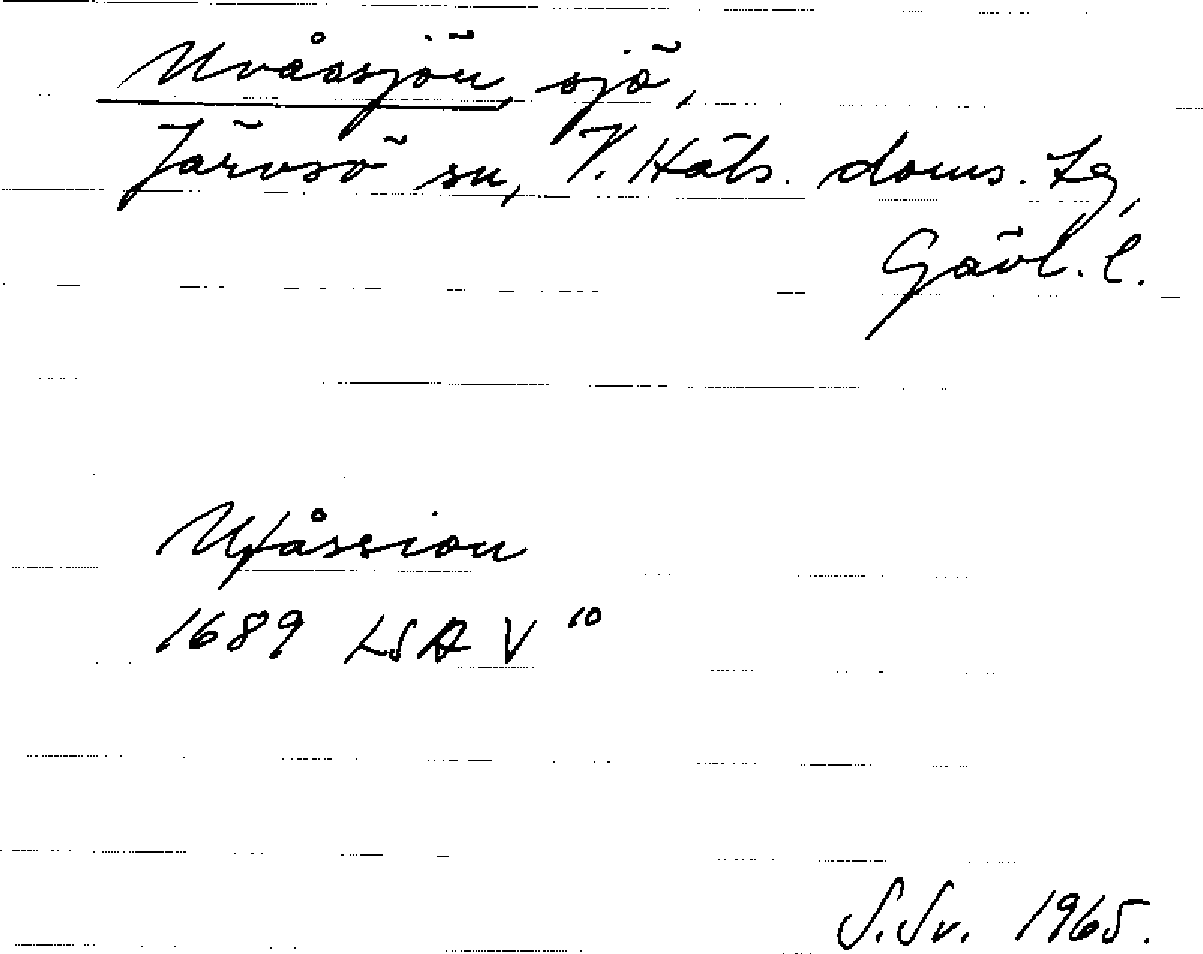 Uvåasjön, sjö,
Järvsö sn, V. Häls. doms. tg,
Gävl. l.
Ufåssion
1689 LSA V 10
S.Sv. 1965.